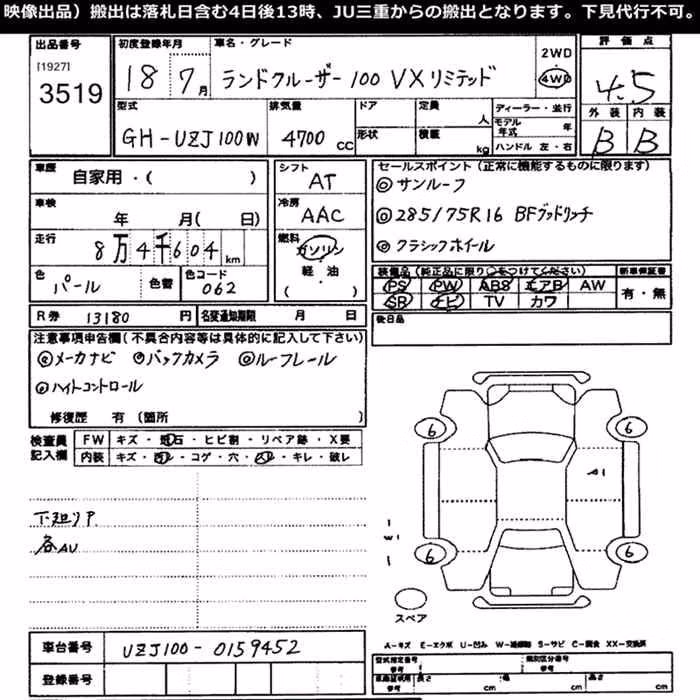 映像出品）搬出は落札日含む4日後13時、JU三重からの搬出となります。下見代行不可。
出品番号 初度登録年月 車名・グレード 評価点
[1927] 3519
18 7月 ランドクルーザー100 VXリミテッド 2WD 4WD 4.5
型式 排気量 ドア 定員 人 ディーラー・並行 外装 内装
GH-UZJ100W 4700 CC 形状 積載 kg モデル年式 年 ハンドル 左・右 B B
車歴 自家用・( ) シフト AT セールスポイント（正常に機能するものに限ります）
◎サンルーフ
車検 年 月( 日) 冷房 AAC ◎285/75R16 BFグッドリッチ
走行 8万4千604km 燃料 ガソリン ◎クラシックホイール
軽・油
( )
色 パール 色替 色コード 062
装備品（純正品に限り○をつけてください） 新車保証書
PS PW ABS エアB AW 有・無
SR ナビ TV カワ
R券 13180円 名変通知期限 月 日 後日品
注意事項申告欄(不具合内容等は具体的に記入して下さい)
◎メーカナビ ◎バックカメラ ◎ルーフレール
◎ハイトコントロール
修復歴 有（箇所 ）
検査員記入欄 FW キズ・飛石・ヒビ割・リペア跡・X要
内装 キズ・汚レ・コゲ・穴・スレ・キレ・破レ
下廻リP
各AU
6 6
A1
W1
6 6
スペア
A-キズ E-エクボ U-凹み W-補修跡 S-サビ C-腐食 XX-交換済
車台番号 UZJ100-0159452
登録番号
型式指定番号 参考 類別区分番号 参考
車検証記載 参考 長さ cm 幅 cm 高さ cm